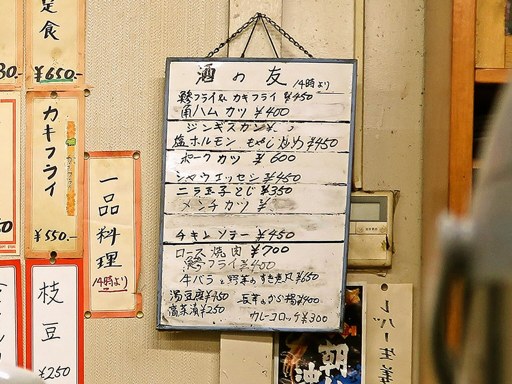 定食
¥650.-
カキフライ
¥550.-
一品料理
14時より
枝豆
¥250
酒の友
14時より
鯵フライ& カキフライ ¥450
角ハムカツ ¥400
ジンギスカン¥
塩ホルモン もやし炒め ¥450
ポークカツ ¥600
シャウエッセン ¥450
ニラ玉子とじ ¥350
メンチカツ ¥
チキンソテー ¥450
ロース焼肉 ¥700
鯵フライ ¥400
牛バラと野菜のすき煮风 ¥650
湯豆腐¥450
長芋のから揚¥400
高菜漬¥250
カレーコロッケ¥300
レバー生姜
朝